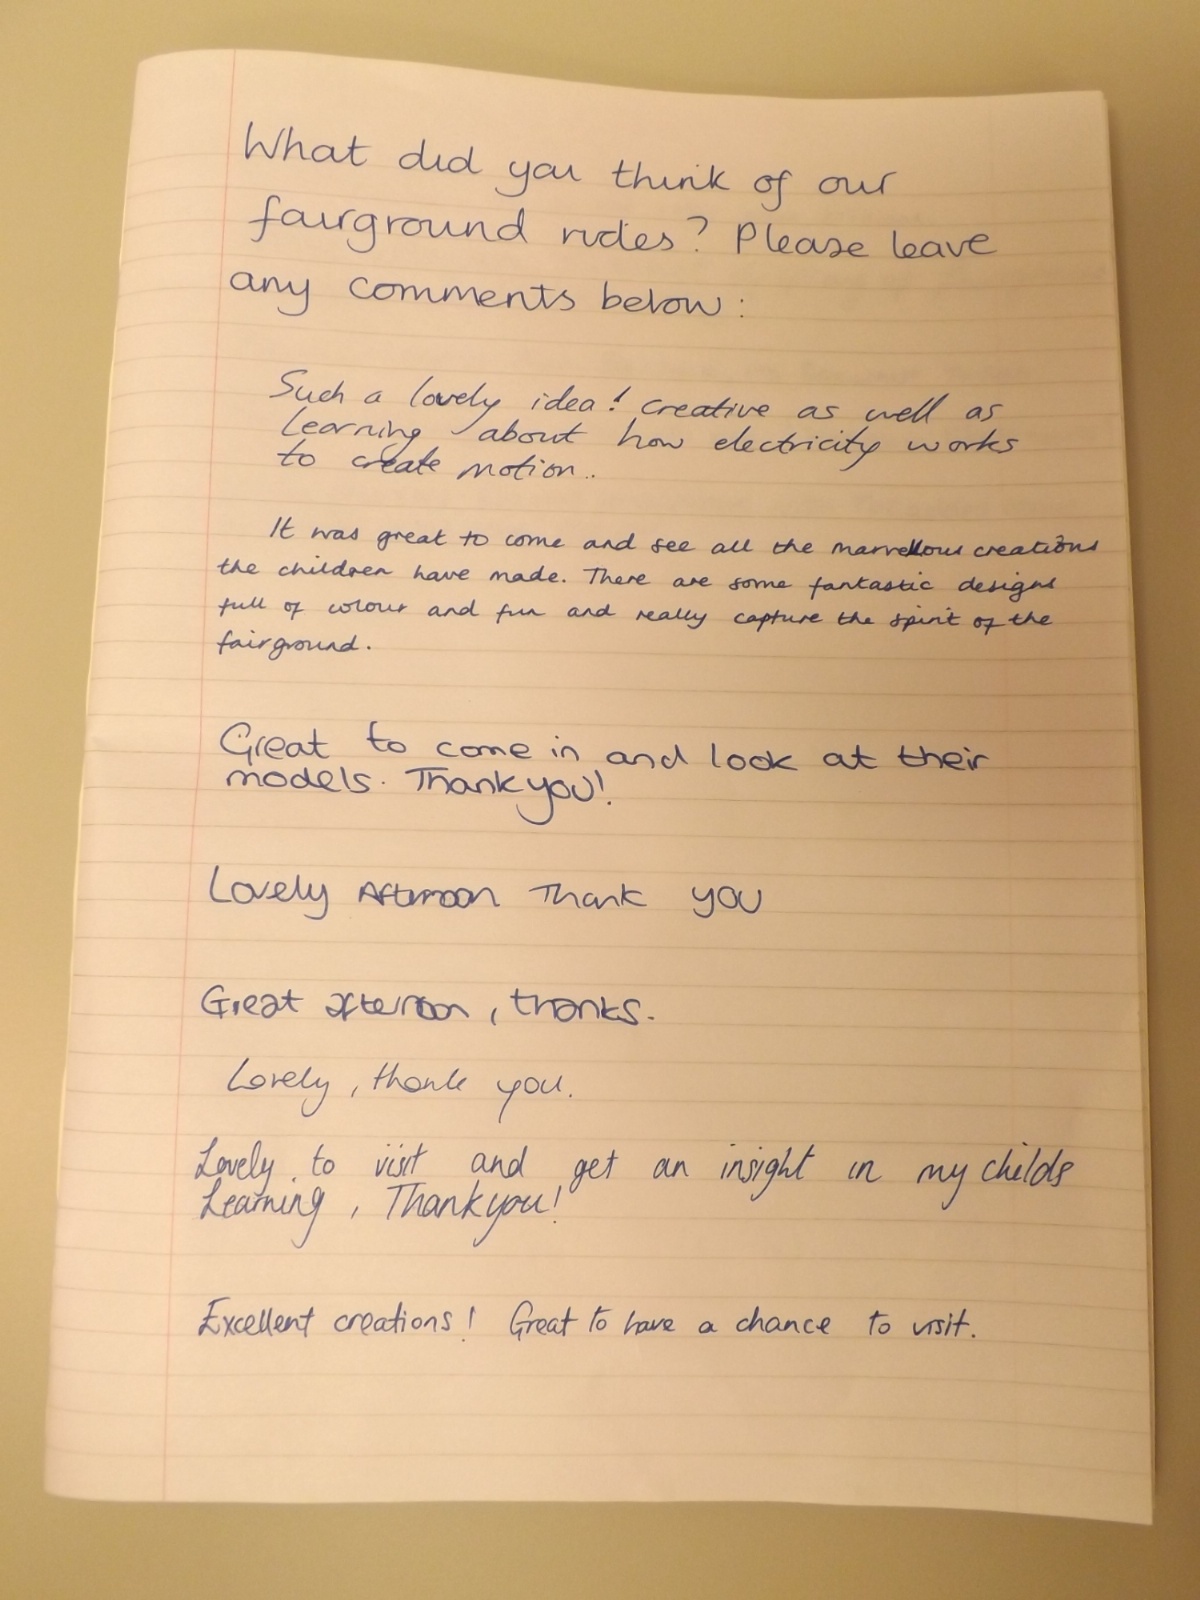 What did you think of our
fairground rides? Please leave
any comments below:
Such a lovely idea! Creative as well as
learning about how electricity works
to create motion..
It was great to come and see all the marvellous creations
the children have made. There are some fantastic designs
full of colour and fun and really capture the spirit of the
fairground.
Great to come in and look at their
models. Thank you!
Lovely Afternoon Thank you
Great afternoon, thanks.
Lovely, thank you.
Lovely to visit and get an insight in my childs
Learning, Thank you!
Excellent creations! Great to have a chance to visit.